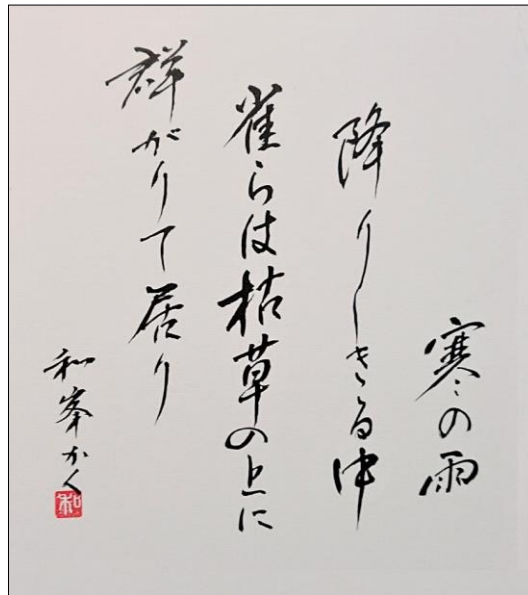 寒の雨
降りしきる中
雀らは枯草の上に
群がりて居り
和峯かく
和